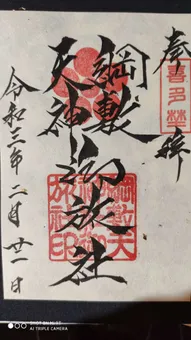 奉拝
喜多埜
綱敷
天神御旅社
綱敷天
神御
旅社印
令和三年二月廿一日
MI 9
AI TRIPLE CAMERA